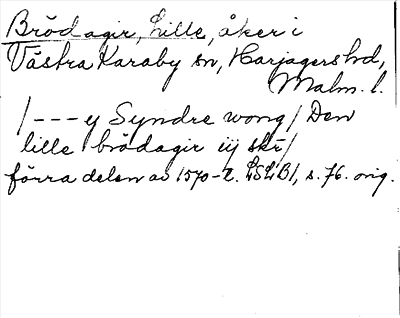 Brödagir, Lille, åker i
Västra Karaby sn, Harjagers hd,
Malm. l.
/---y Syndre wong/ Den
lille brödagir iij skr/
förra delen av 1570-t. LSLB1, s. 76. orig.